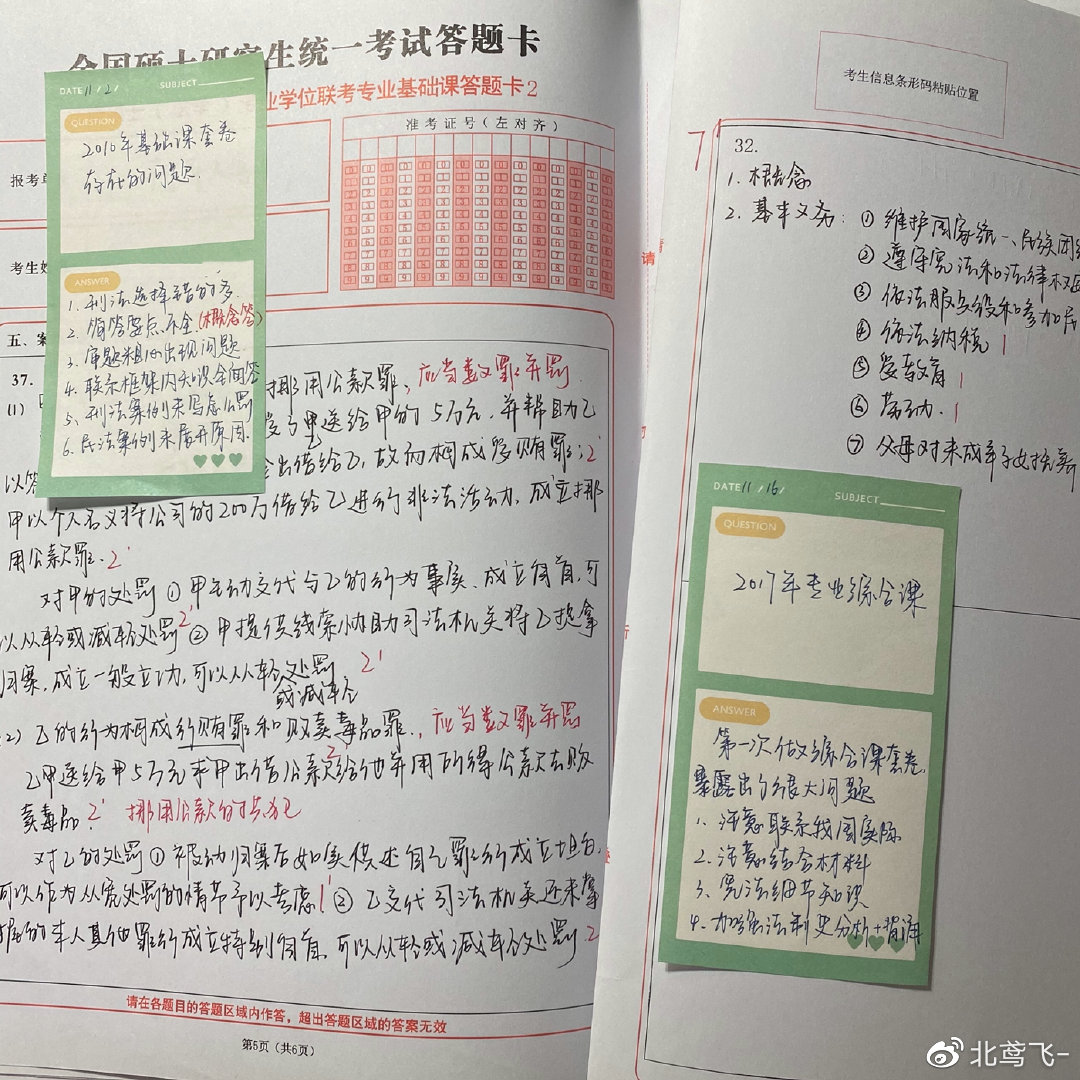 全国硕士研究生统一考试答题卡
业学位联考专业基础课答题卡2
准考证号(左对齐)
报考单
考生姓
DATE 11/2/ SUBJECT
QUESTION
2016年基础课套卷
存在的问题.
ANSWER
1. 刑法选择错的多
2. 简答要点不全(概念答)
3. 审题粗心出现问题
4. 联系框架内知识全面答
5. 刑法案例未写怎么罚
6. 民法案例未展开原因.
五、案
37.
(1)
挪用公款罪, 应当数罪并罚
受了甲送给甲的5万元, 并帮助乙
以答 出借给乙, 故而构成受贿罪; 2'
甲以个人名义将公司的200万借给乙进行非法活动, 成立挪
用公款罪. 2'
对甲的处罚 ① 甲主动交代与乙的行为事实, 成立自首, 可
以从轻或减轻处罚 2' ② 甲提供线索协助司法机关将乙抓拿
归案, 成立一般立功, 可以从轻处罚 2'
或减轻
(2) 乙的行为构成行贿罪和贩卖毒品罪., 应当数罪并罚
乙甲送给甲5万元求甲出借公款给他并用所得公款去贩 2'
卖毒品. 2' 挪用公款的共犯
对乙的处罚 ① 被动归案后如实供述自己罪行成立坦白,
可以作为从宽处罚的情节予以考虑 1' ② 乙交代司法机关还未掌
握的本人其他罪行成立特别自首, 可以从轻或减轻处罚 2
请在各题目的答题区域内作答，超出答题区域的答案无效
第5页（共6页）
考生信息条形码粘贴位置
7'
32.
1. 概念
2. 基本义务: ① 维护国家统一、民族团结
② 遵守宪法和法律
③ 依法服兵役和参加民
④ 依法纳税 1
⑤ 受教育 1
⑥ 劳动. 1
⑦ 父母对未成年子女抚养
请
行
DATE 11/16/ SUBJECT
QUESTION
2017年专业综合课
ANSWER
第一次做综合课套卷,
暴露出了很大问题
1. 注意联系我国实际
2. 注意结合材料
3. 宪法细节知识
4. 加强法制史分析+背诵
北鸢飞-